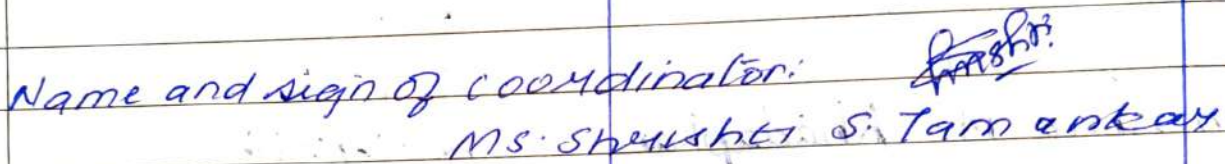 Name and sign of coordinator:
Ms. Shrushti S. Tamankar